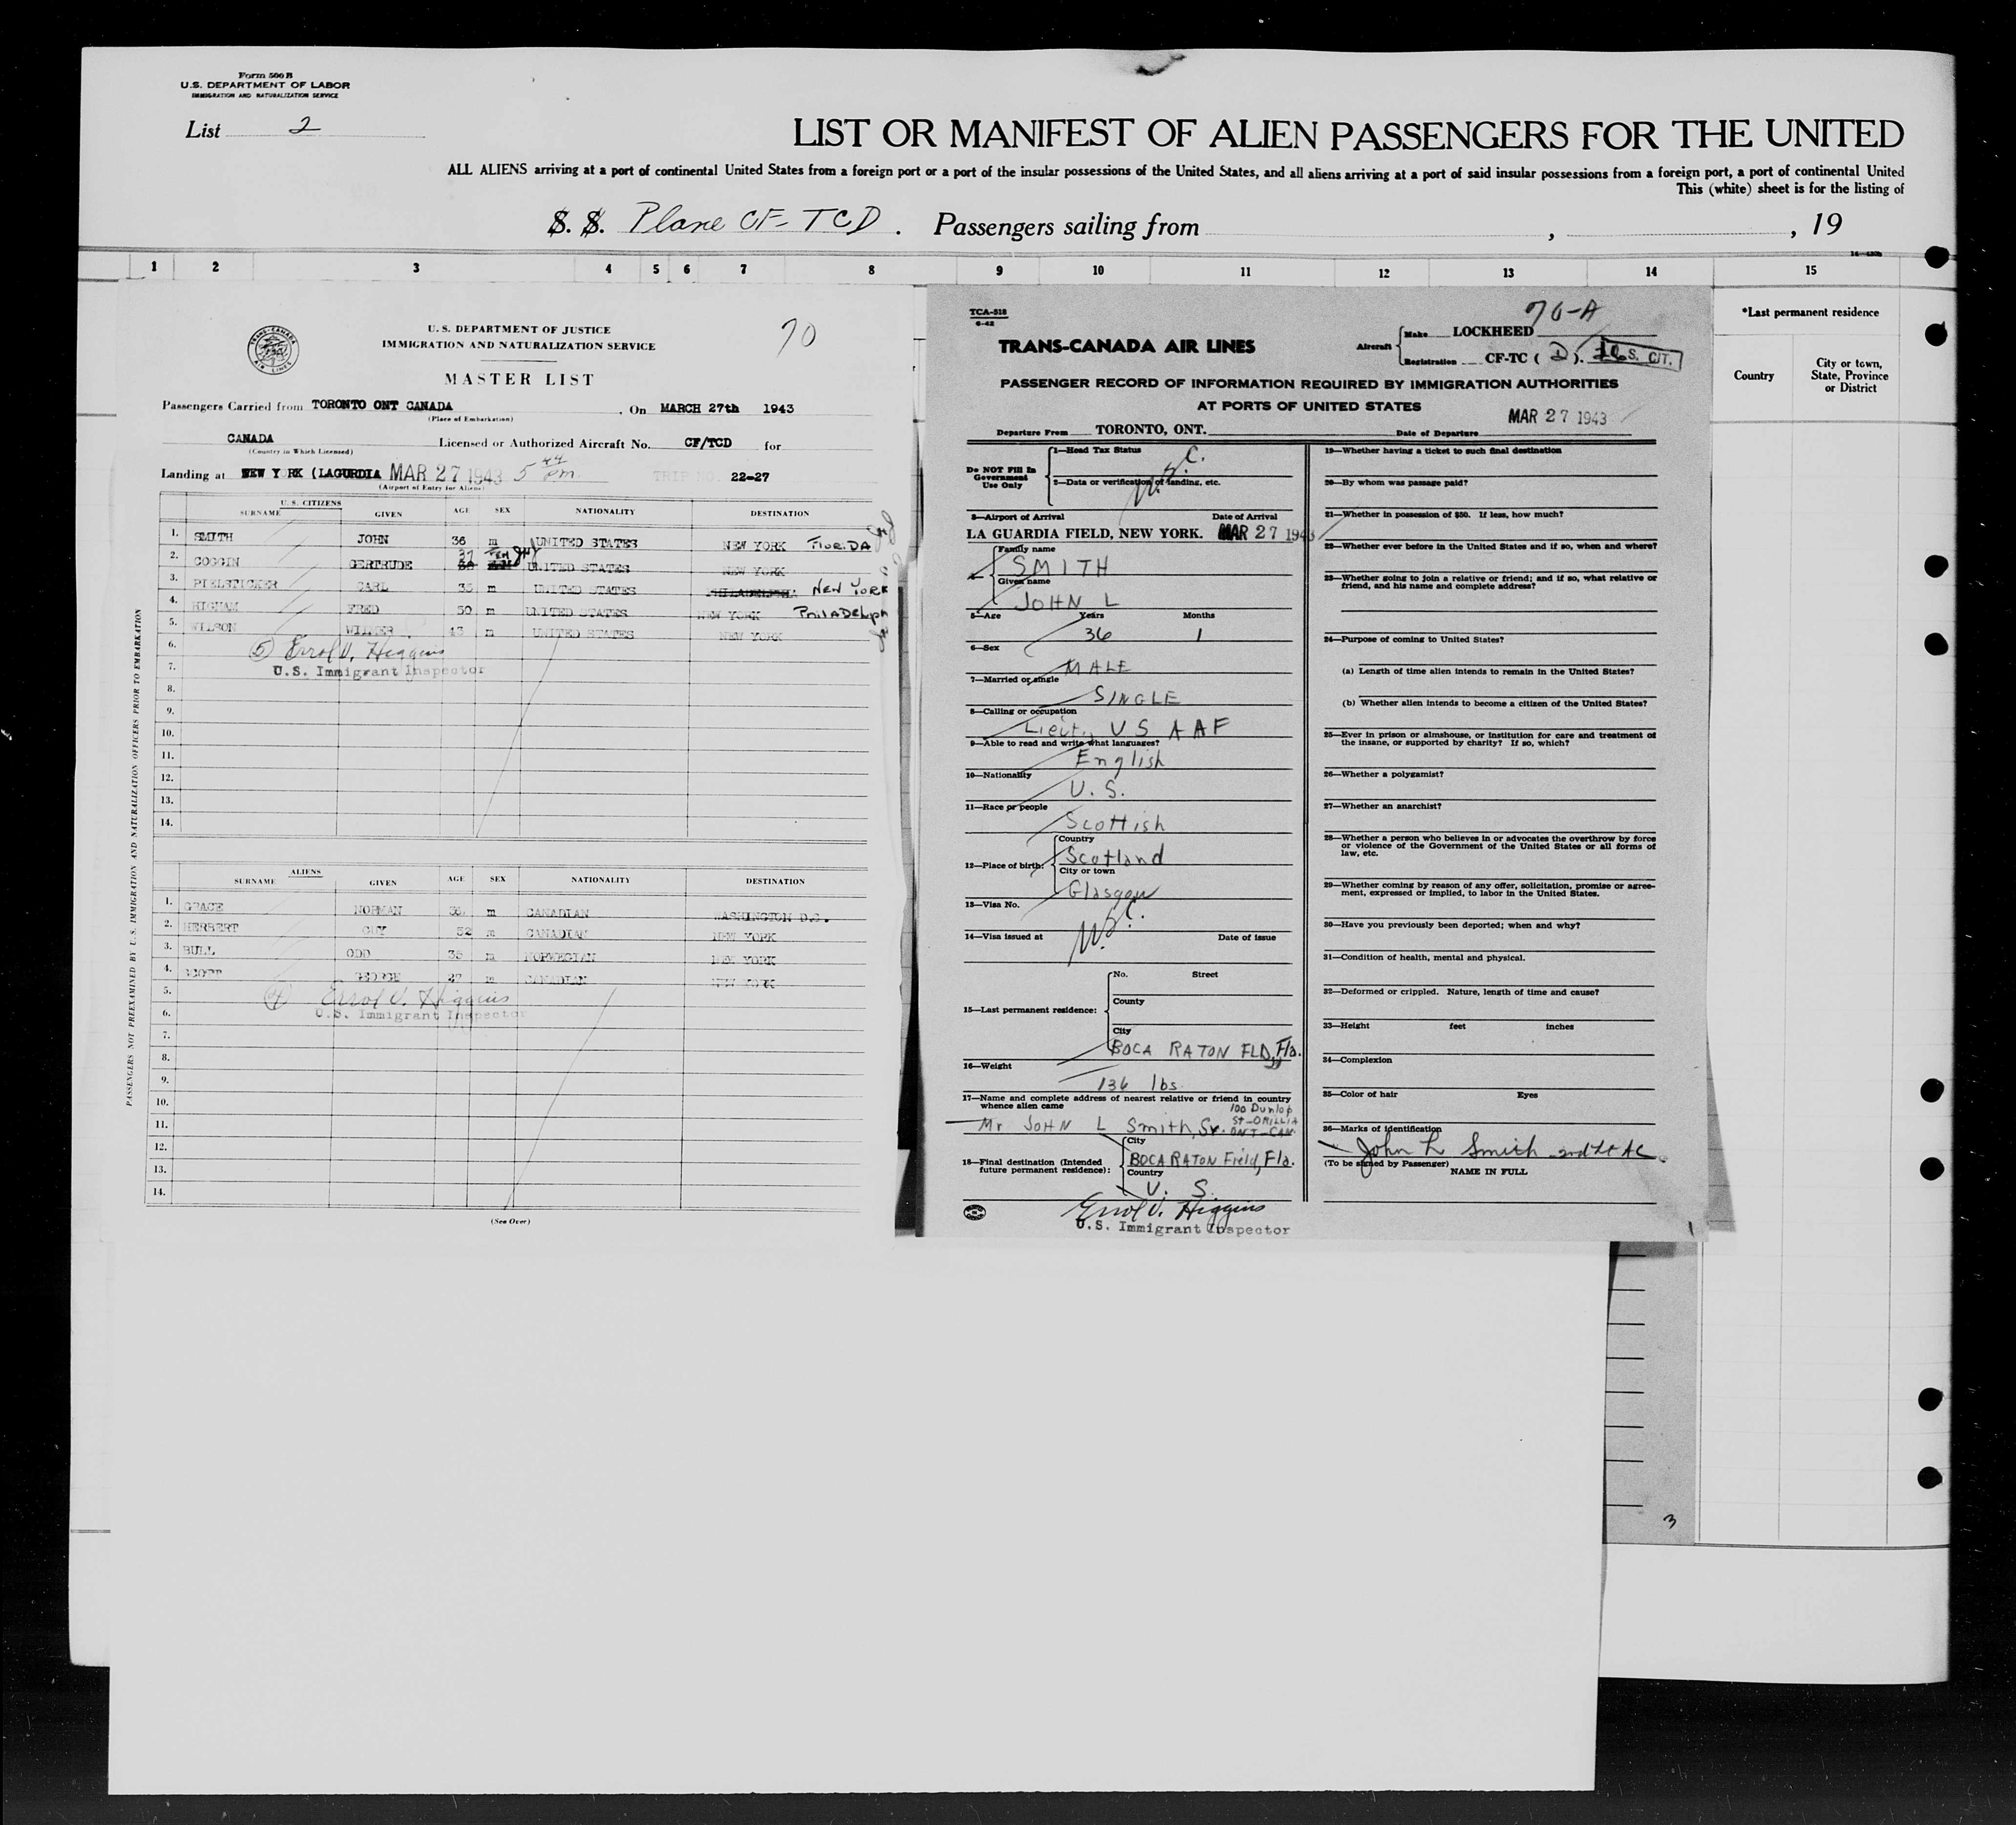 Form 500 B
U.S. DEPARTMENT OF LABOR
IMMIGRATION AND NATURALIZATION SERVICE
List 2
LIST OR MANIFEST OF ALIEN PASSENGERS FOR THE UNITED
ALL ALIENS arriving at a port of continental United States from a foreign port or a port of the insular possessions of the United States, and all aliens arriving at a port of said insular possessions from a foreign port, a port of continental United
This (white) sheet is for the listing of
S. S. Plane CF-TCD. Passengers sailing from , , 19
1 2 3 4 5 6 7 8 9 10 11 12 13 14 15
*Last permanent residence
Country
City or town, State, Province or District
TRANS-CANADA AIR LINES
U. S. DEPARTMENT OF JUSTICE
IMMIGRATION AND NATURALIZATION SERVICE
70
MASTER LIST
Passengers Carried from TORONTO ONT CANADA, On MARCH 27th 1943
(Place of Embarkation)
CANADA Licensed or Authorized Aircraft No. CF/TCD for
(Country in Which Licensed)
Landing at NEW YORK (LAGURDIA MAR 27 1943 5 44 pm TRIP NO. 22-27
(Airport of Entry for Aliens)
PASSENGERS NOT PREEXAMINED BY U.S. IMMIGRATION AND NATURALIZATION OFFICERS PRIOR TO EMBARKATION
U.S. CITIZENS
SURNAME GIVEN AGE SEX NATIONALITY DESTINATION
1. SMITH JOHN 36 m UNITED STATES NEW YORK FLORIDA
2. COGGIN GERTRUDE 37 FEM UNITED STATES NEW YORK
3. PIELSTICKER CARL 35 m UNITED STATES PHILADELPHIA NEW YORK
4. HIGHAM FRED 50 m UNITED STATES NEW YORK PHILADELPH
5. WILSON WILMER 43 m UNITED STATES NEW YORK
6. (5) Errol V. Higgins
7. U.S. Immigrant Inspector
8.
9.
10.
11.
12.
13.
14.
ALIENS
SURNAME GIVEN AGE SEX NATIONALITY DESTINATION
1. GRACE NORMAN m CANADIAN WASHINGTON D.C.
2. HERBERT GUY 52 m CANADIAN NEW YORK
3. BULL ODD 35 m NORWEGIAN NEW YORK
4. SCOTT GEORGE 27 m CANADIAN NEW YORK
5. (4) Errol V. Higgins
6. U.S. Immigrant Inspector
7.
8.
9.
10.
11.
12.
13.
14.
(See Over)
TCA-518
6-42
70-A
TRANS-CANADA AIR LINES
Aircraft Make LOCKHEED
Registration CF-TC (D). 16 U.S. CIT.
PASSENGER RECORD OF INFORMATION REQUIRED BY IMMIGRATION AUTHORITIES
AT PORTS OF UNITED STATES
MAR 27 1943
Departure From TORONTO, ONT. Date of Departure
Do NOT Fill In Government Use Only
1—Head Tax Status
2—Data or verification of landing, etc.
3—Airport of Arrival Date of Arrival
LA GUARDIA FIELD, NEW YORK. MAR 27 1943
4— Family name
SMITH
Given name
JOHN L
5—Age Years Months
36 1
6—Sex
MALE
7—Married or single
SINGLE
8—Calling or occupation
Lieut., U S A A F
9—Able to read and write what languages?
English
10—Nationality
U. S.
11—Race or people
Scottish
12—Place of birth: Country
Scotland
City or town
Glasgow
13—Visa No.
14—Visa issued at Date of issue
15—Last permanent residence: No. Street
County
City
BOCA RATON FLD, Fla.
16—Weight
136 lbs.
17—Name and complete address of nearest relative or friend in country
whence alien came
Mr JOHN L Smith, Sr. 100 Dunlop
St-ORILLIA
ONT-CAN.
18—Final destination (Intended future permanent residence): City
BOCA RATON Field, Fla.
Country
U. S.
Errol V. Higgins
U.S. Immigrant Inspector
19—Whether having a ticket to such final destination
20—By whom was passage paid?
21—Whether in possession of $50. If less, how much?
22—Whether ever before in the United States and if so, when and where?
23—Whether going to join a relative or friend; and if so, what relative or
friend, and his name and complete address?
24—Purpose of coming to United States?
(a) Length of time alien intends to remain in the United States?
(b) Whether alien intends to become a citizen of the United States?
25—Ever in prison or almshouse, or institution for care and treatment of
the insane, or supported by charity? If so, which?
26—Whether a polygamist?
27—Whether an anarchist?
28—Whether a person who believes in or advocates the overthrow by force
or violence of the Government of the United States or all forms of
law, etc.
29—Whether coming by reason of any offer, solicitation, promise or agree-
ment, expressed or implied, to labor in the United States.
30—Have you previously been deported; when and why?
31—Condition of health, mental and physical.
32—Deformed or crippled. Nature, length of time and cause?
33—Height feet inches
34—Complexion
35—Color of hair Eyes
36—Marks of identification
John L Smith 2nd Lt AC.
(To be signed by Passenger)
NAME IN FULL
3